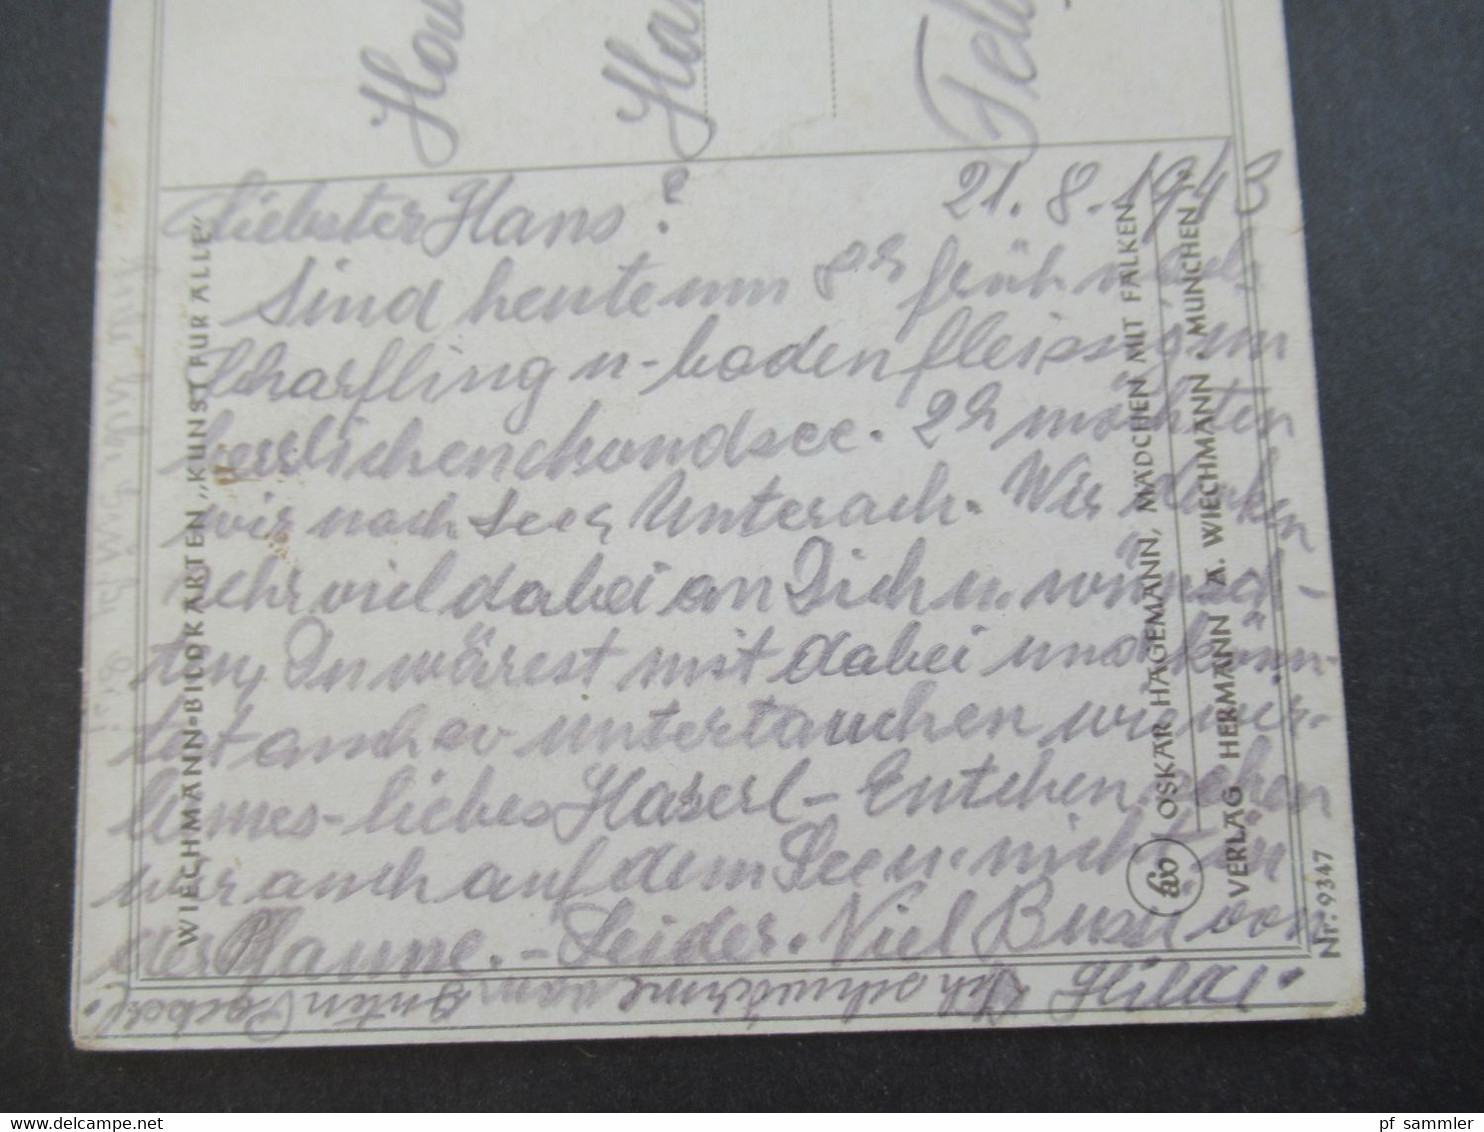 Hau
Ha
Feld
21. 8. 1943
Liebster Hans!
Sind heute um 8h früh nach
Scharfling u. baden fleissig im
herrlichen Mondsee. 2h möchten
wir nach See u. Unterach. Wir denken
sehr viel dabei an Dich u. wünsch-
ten, Du wärest mit dabei und könn-
test auch so untertauchen wie wir.
Armes - liebes Haserl - Entchen sehen
wir auch auf dem See u. nicht in
der Pfanne. - Leider. Viel Bussi von
Hilde.
WIECHMANN-BILDKARTEN „KUNST FÜR ALLE"
OSKAR HAGEMANN, MÄDCHEN MIT FALKEN
VERLAG HERMANN A. WIECHMANN · MÜNCHEN
Nr. 9347
pf sammler